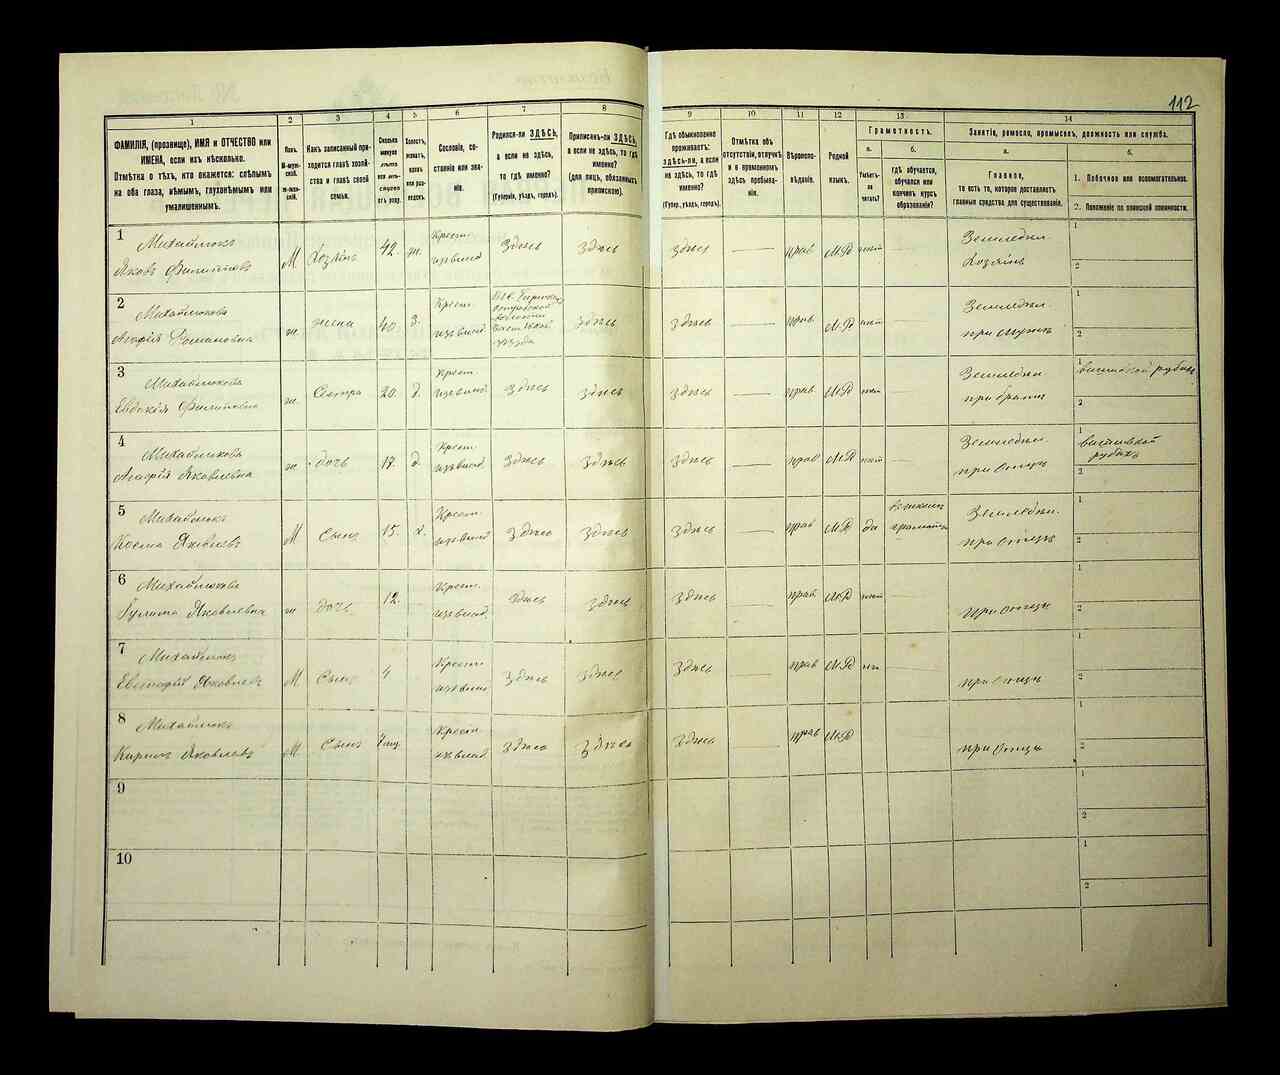 112
1
2
3
4
5
6
7
8
9
10
11
12
13
14
ФАМИЛІЯ, (прозвище), ИМЯ и ОТЧЕСТВО или
ИМЕНА, если ихъ нѣсколько.
Отмѣтка о тѣхъ, кто окажется: слѣпымъ
на оба глаза, нѣмымъ, глухонѣмымъ или
умалишеннымъ.
Полъ.
М-муж-
ской.
ж-жен-
скій.
Какъ записанный при-
ходится главѣ хозяй-
ства и главѣ своей
семьи.
Сколько
минуло
лѣтъ
или мѣс-
яцевъ
отъ роду.
Холостъ,
женатъ,
вдовъ
или раз-
веденъ.
Сословіе, со-
стояніе или зва-
ніе.
Родился-ли ЗДѢСЬ,
а если не здѣсь,
то гдѣ именно?
(Губернія, уѣздъ, городъ).
Приписанъ-ли ЗДѢСЬ,
а если не здѣсь, то гдѣ
именно?
(для лицъ, обязанныхъ
припискою).
Гдѣ обыкновенно
проживаетъ:
ЗДѢСЬ-ли, а если
не здѣсь, то гдѣ
именно?
(Губер., уѣздъ, городъ).
Отмѣтка объ
отсутствіи, отлучкѣ
и о временномъ
здѣсь пребыва-
ніи.
Вѣроиспо-
вѣданіе.
Родной
языкъ.
Грамотность.
а.
Умѣетъ-
ли
читать?
б.
гдѣ обучается,
обучался или
кончилъ курсъ
образованія?
Занятіе, ремесло, промыселъ, должность или служба.
а.
Главное,
то есть то, которое доставляетъ
главныя средства для существованія.
б.
1. Побочное или вспомогательное.
2. Положеніе по воинской повинности.
1
Михайлюкъ
Яковъ Филиповъ
М
Хозяинъ
42
ж.
Крест.
Здѣсь
Здѣсь
Здѣсь
прав
М.Р
нѣт
Земледѣл.
Хозяинъ
1
2
2
Михайлюкова
Агафія Романовна
ж
жена
40
з.
Крест.
Здѣсь
Здѣсь
прав
М.Р
нѣт
Земледѣл.
при мужѣ
1
2
3
Евдокія Филиповна
ж
Сестра
20
д.
Крест.
Здѣсь
Здѣсь
Здѣсь
прав
М.Р
нѣт
Земледѣл.
при братѣ
1
2
4
Михайлюкова
Агафія Яковлевна
ж
дочь
17
д
Крест.
Здѣсь
Здѣсь
Здѣсь
прав
М.Р
нѣт
Земледѣл.
при Отцѣ
1
2
5
Михайлюкъ
Косма Яковлевъ
М
Сынъ
15.
х.
Крест.
Здѣсь
Здѣсь
Здѣсь
прав
М.Р
да
Земледѣл.
при Отцѣ
1
2
6
Михайлюкова
Яковлевна
ж
дочь
12.
Крест.
Здѣсь
Здѣсь
Здѣсь
прав
М.Р
нѣт
при Отцѣ
1
2
7
Михайлюкъ
Евстафій Яковлевъ
М
Сынъ
4
Крест.
Здѣсь
Здѣсь
Здѣсь
прав
М.Р
при Отцѣ
1
2
8
Михайлюкъ
Кирилъ Яковлевъ
М
Сынъ
Крест.
Здѣсь
Здѣсь
Здѣсь
прав
М.Р
при Отцѣ
1
2
9
1
2
10
1
2